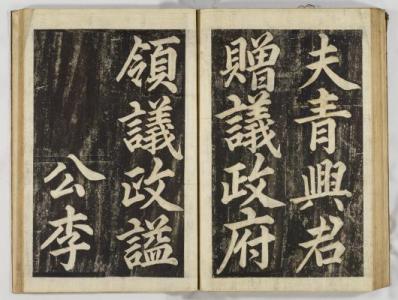 夫青興君
贈議政府
領議政謚
公李